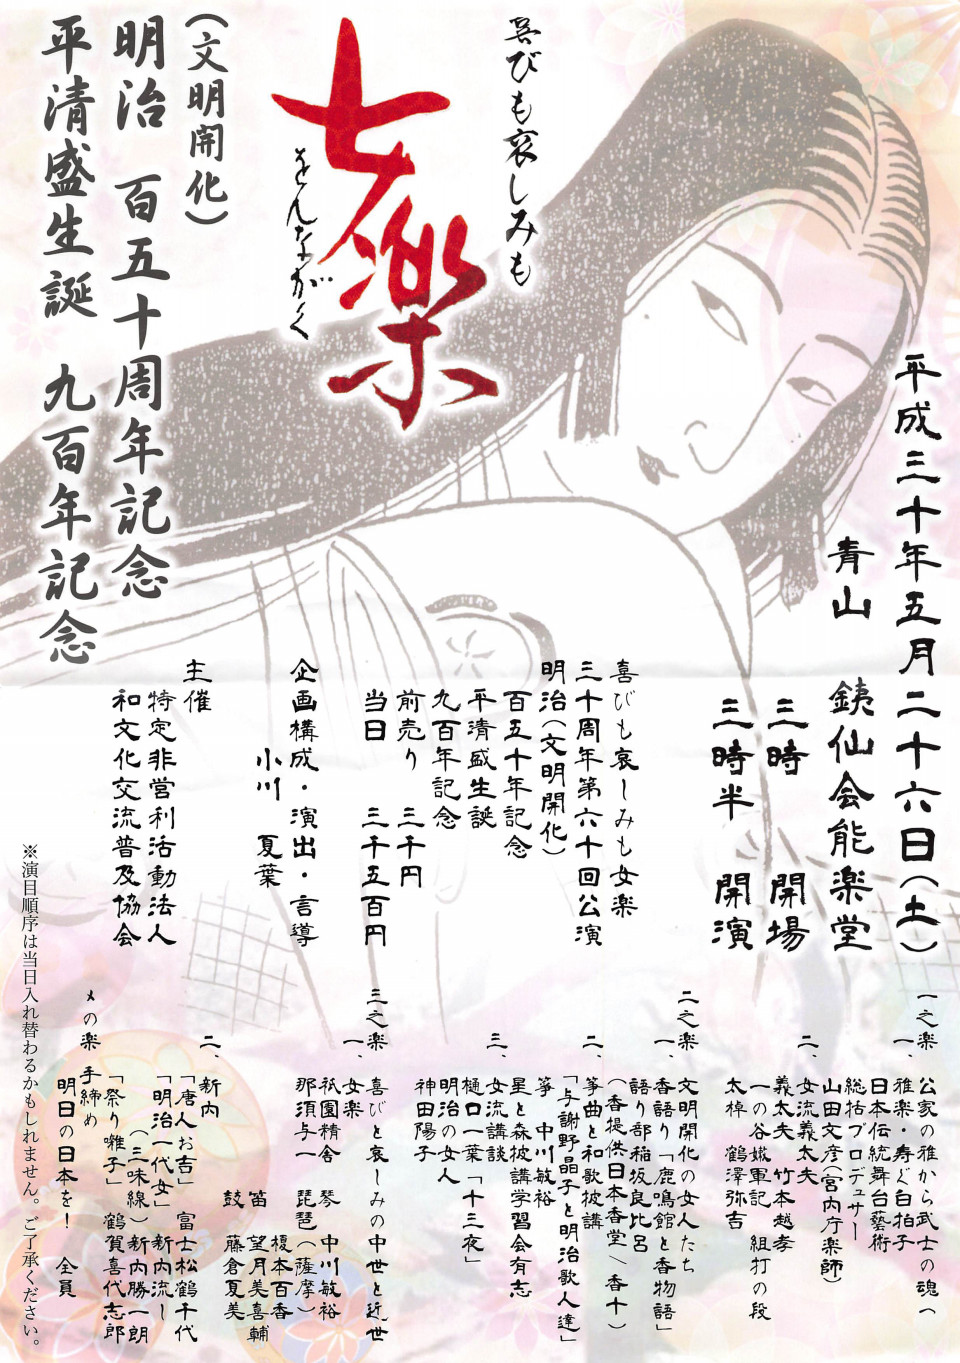 喜びも哀しみも
女楽
をんながく
(文明開化)
明治 百五十周年記念
平清盛生誕 九百年記念
平成三十年五月二十六日(土)
青山 銕仙会能楽堂
三時 開場
三時半 開演
喜びも哀しみも女楽
三十周年第六十回公演
明治(文明開化)
百五十年記念
平清盛生誕
九百年記念
前売り 三千円
当日 三千五百円
企画構成・演出・言導
小川 夏葉
主催
特定非営利活動法人
和文化交流普及協会
一之楽 公家の雅から武士の魂へ
一、雅楽・寿ぐ白拍子
日本伝統舞台藝術
総括プロデューサー
山田文彦(宮内庁楽師)
二、女流義太夫
義太夫 竹本越孝
一の谷嫩軍記 組打の段
太棹 鶴澤弥吉
二之楽 文明開化の女人たち
一、香語り「鹿鳴館と香物語」
語り部 稲坂良比呂
(香提供 日本香堂/香十)
二、箏曲と和歌披講
「与謝野晶子と明治歌人達」
箏 中川敏裕
星と森披講学習会有志
三、女流講談
樋口一葉「十三夜」
明治の女人
神田陽子
三之楽 喜びと哀しみの中世と近世
一、女楽
祇園精舎 琴 中川敏裕
那須与一 琵琶(薩摩)
榎本百香
笛 望月美喜輔
鼓 藤倉夏美
二、新内
「唐人お吉」 富士松鶴千代
「明治一代女」 新内流し
(三味線)新内勝一朗
「祭り囃子」 鶴賀喜代志郎
〆の楽 手締め
明日の日本を! 全員
※演目順序は当日入れ替わるかもしれません。ご了承ください。